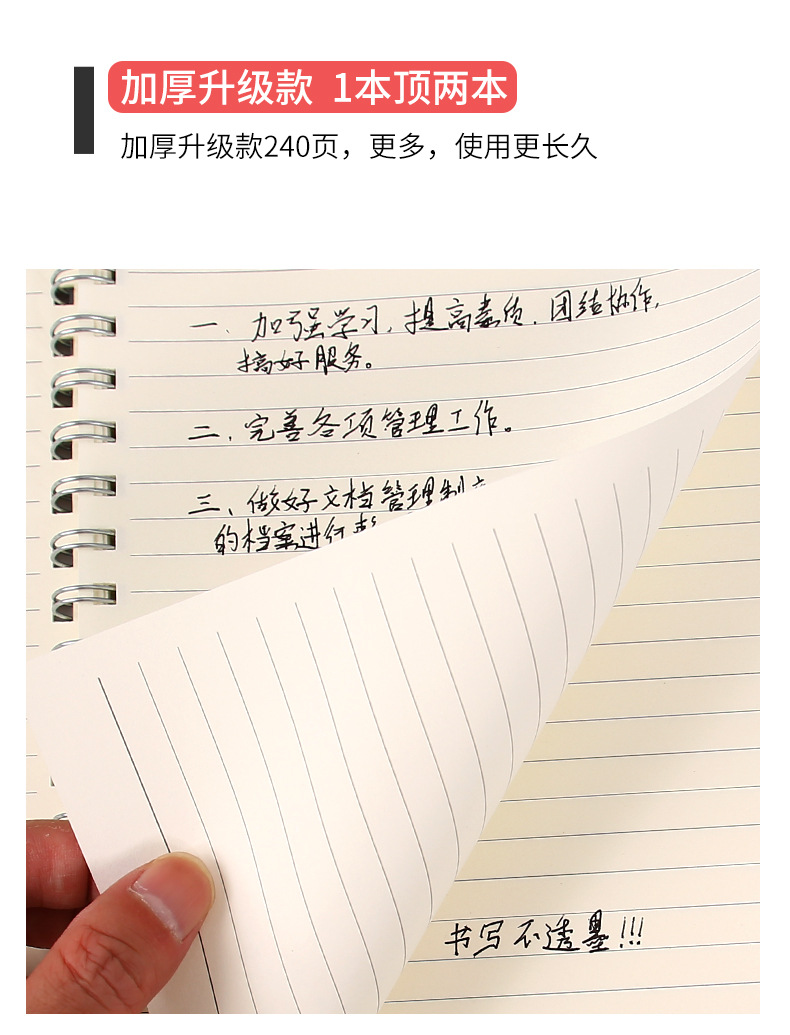 加厚升级款 1本顶两本
加厚升级款240页，更多，使用更长久
一、加强学习，提高素质，团结协作，
搞好服务。
二、完善各项管理工作。
三、做好文档管理制
的档案进行
书写不透墨!!!